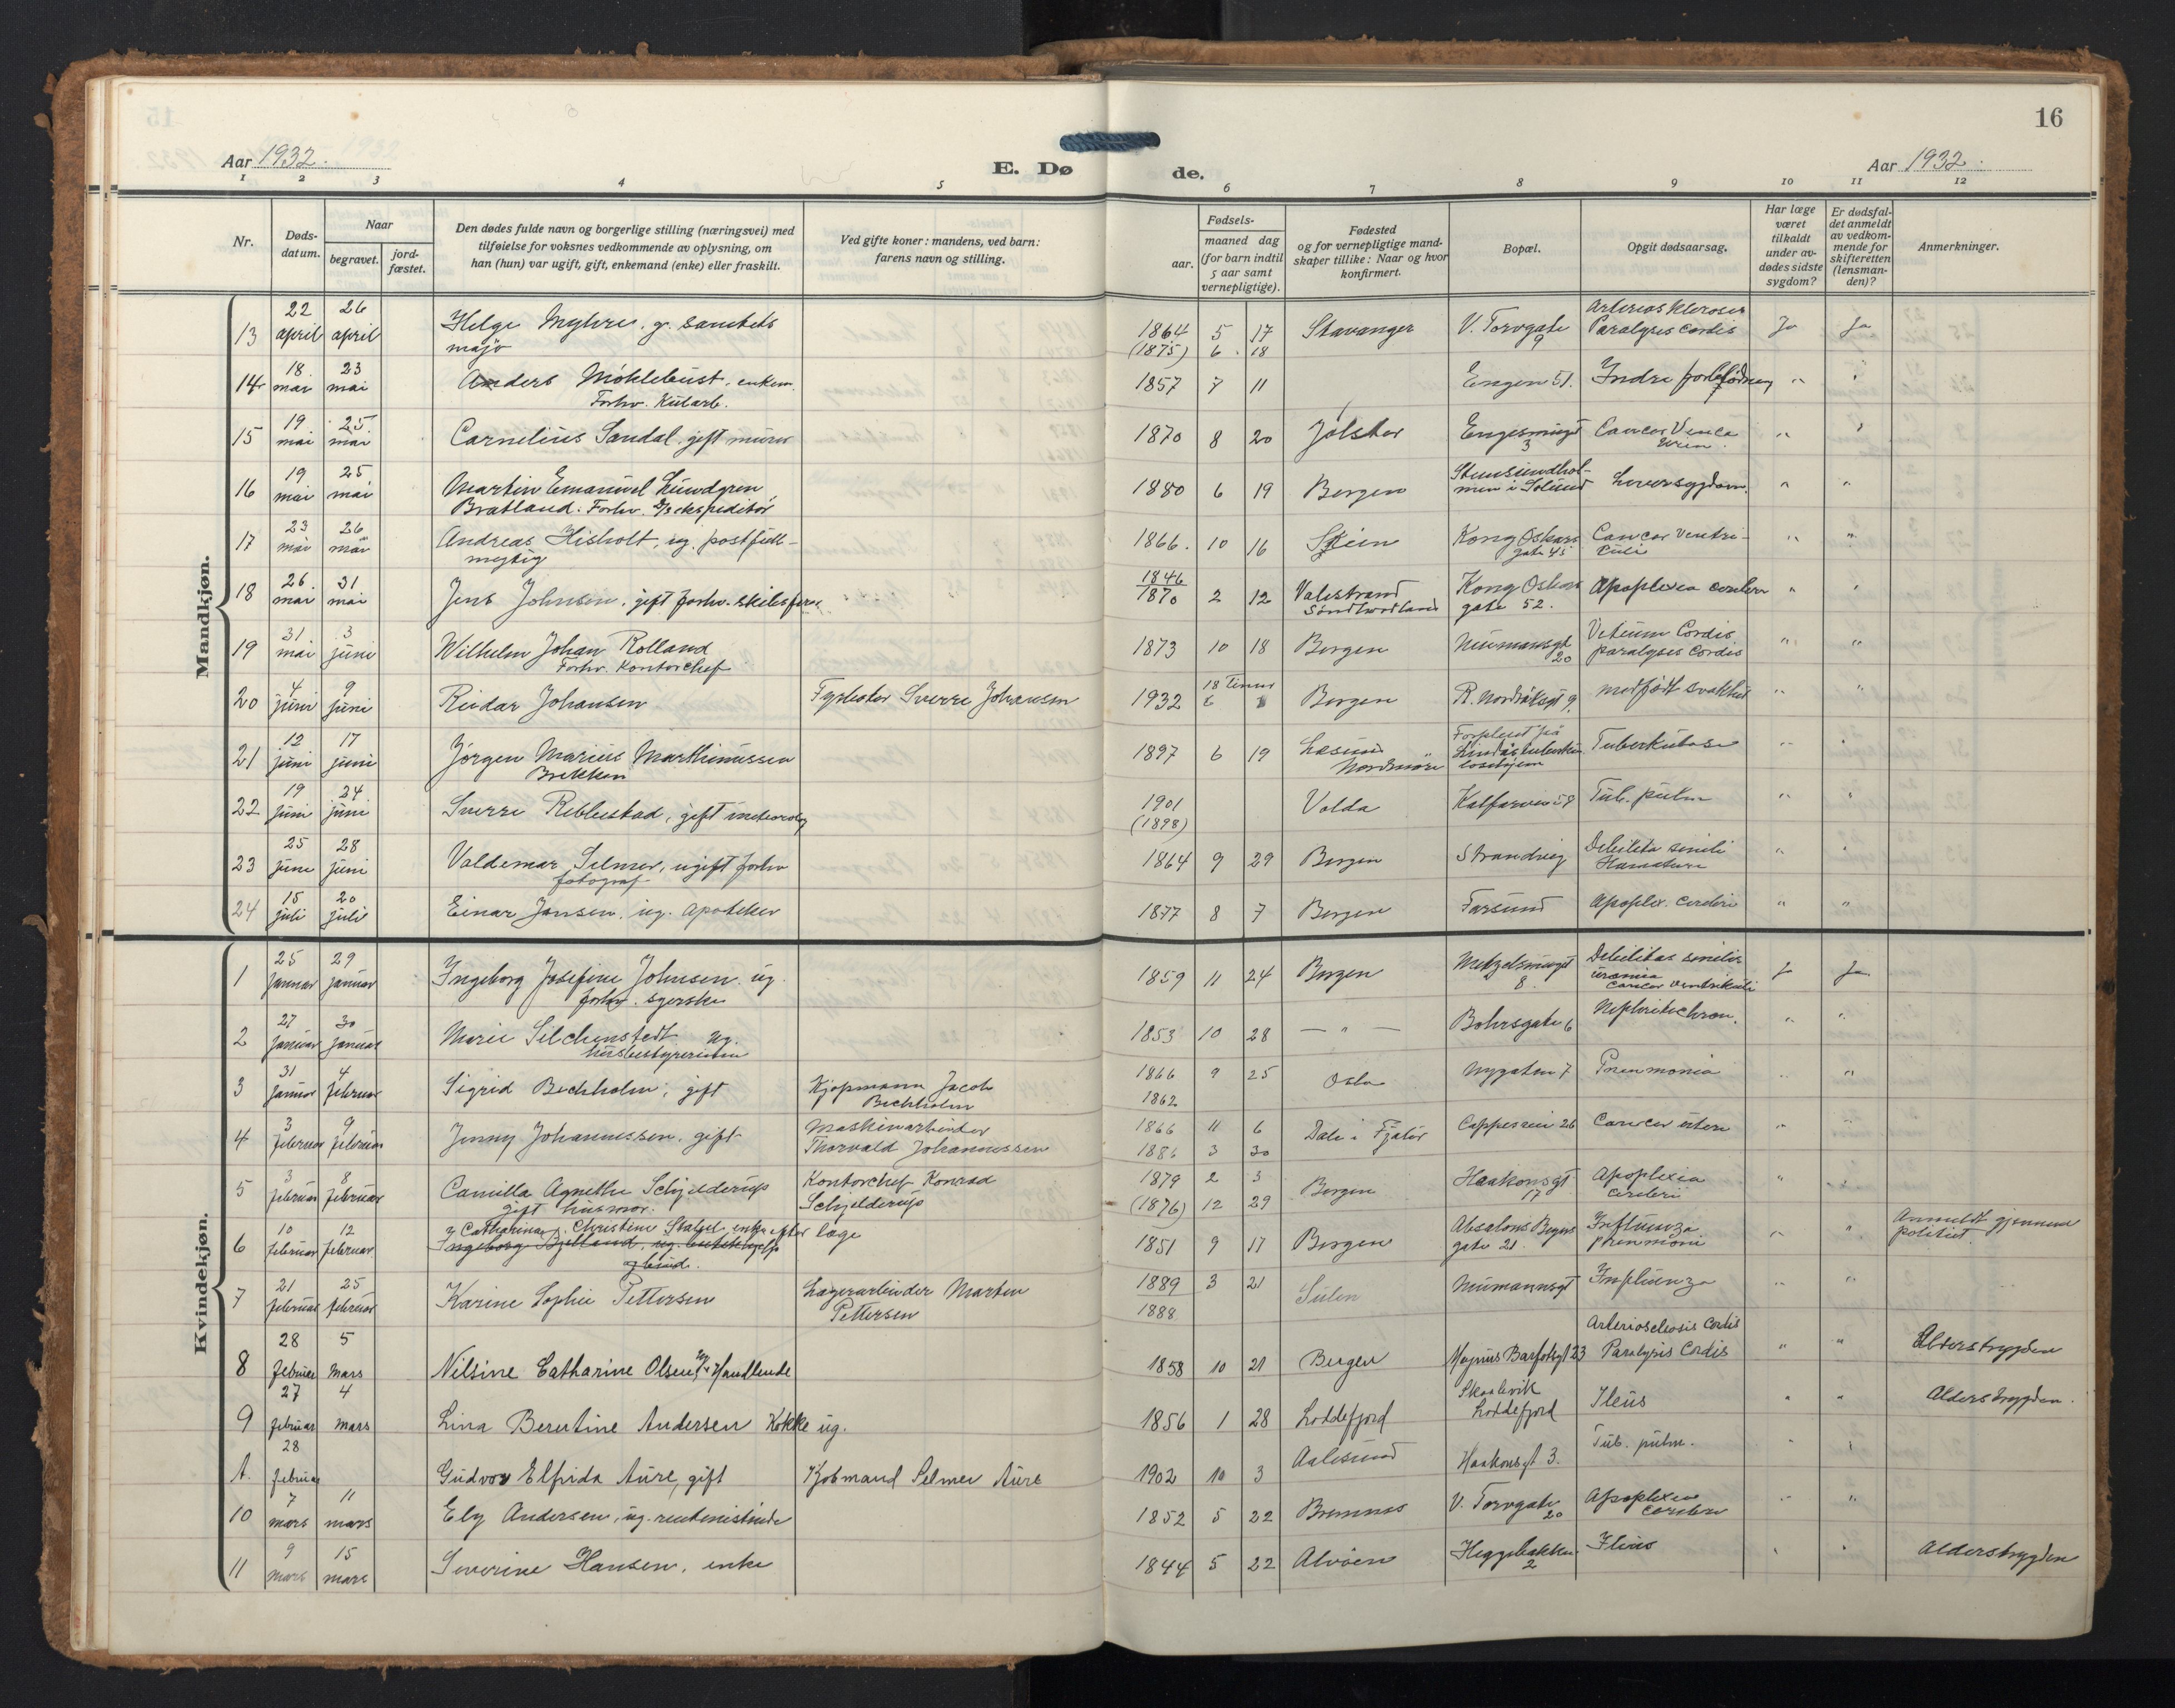 16
Aar 1932.
E. Dø de.
Aar 1932.
1 2 3 4 5 6 7 8 9 10 11 12
Nr.
Døds-
datum.
Naar
begravet.
jord-
fæstet.
Den dødes fulde navn og borgerlige stilling (næringsvei) med
tilføielse for voksnes vedkommende av oplysning, om
han (hun) var ugift, gift, enkemand (enke) eller fraskilt.
Ved gifte koner: mandens, ved barn:
farens navn og stilling.
Fødsels-
aar.
maaned dag
(for barn indtil
5 aar samt
vernepligtige).
Fødested
og for vernepligtige mand-
skaper tillike: Naar og hvor
konfirmert.
Bopæl.
Opgit dødsaarsag.
Har læge
været
tilkaldt
under av-
dødes sidste
sygdom?
Er dødsfal-
det anmeldt
av vedkom-
mende for
skifteretten
(lensman-
den)?
Anmerkninger.
Mandkjøn.
13 22 april 26 april Helge Myhre, g. sanitets 1864 5 17 Stavanger V. Torvgate 9 Arteriosklerosis Paralysis Cordis Ja Ja
major (1875) 6 18
14 18 mai 23 mai Anders Møklebust, enkem. 1857 7 11 Engen 51. Indre forblødning " "
Forhv. Kularb.
15 19 mai 25 mai Carnelius Sandal, gift murer 1870 8 20 Jølster Engesmuget 3 Cancer "  "
16 19 mai 25 mai Martin Emanuel Lundgren 1880 6 19 Bergen Stensundhol-
men i Solund Leversygdom. " "
Bratland. Forhv. D/S ekspeditør
17 23 mai 26 mai Andreas Hisholt, ug. postfull- 1866. 10 16 Skien Kong Oskars gate 45 Cancer Ventri-
culi " "
megtig
18 26. mai 31 mai Jens Johnsen, gift forhv. skibsfører 1846 1870 2 12 Valestrand Søndhordland Kong Oskars gate 52. Apoplexia cerebri " "
19 31 mai 3 juni Wilhelm Johan Rolland 1873 10 18 Bergen Neumansgt 20 Vitium Cordis paralysis Cordis " "
Forhv. Kontorchef
20 4 juni 9 juni Reidar Johansen Fyrbøter Sverre Johansen 1932 18 timer 6 Bergen R. Nordråksgt 9. medfødt svakhet " "
21 12 juni 17 juni Jørgen Marius Marthinussen 1897 6 19 Nordmøre Forpleiet på Lindås tuberku-
losehjem Tuberkulose " "
Brekken
22 19 juni 24 juni Sverre Reblestad, gift meteorolog 1901 (1898) Volda Kalfarvei 59 Tub. pulm " "
23 25 juni 28 juni Valdemar Selmer, ugift forhv 1864 9 29 Bergen Strandvei Debilitas senili Hematuri " "
fotograf
24 15 juli 20 juli Einar Jansen, ug. Apoteker 1877 8 7 Bergen Farsund Apoplex. Cerebri " "
Kvindekjøn.
1 25 januar 29 januar Ingeborg Josefine Johnsen ug. 1859 11 24 Bergen Metzelsmuget 8. Debilitas senilis uremia cancer ventrikuli Ja Ja.
forhv. syerske
2 27 januar 30 januar Marie Silchenstedt ug. 1853 10 28 — " — Bohrsgate 6 Nephritis chron. " "
husbestyrerinde
3 31 januar 4 februar Sigrid Bechholm, gift Kjøpmann Jacob Bechholm 1866 1862 9 25 Oslo Nygaten 7 Pneumonia " "
4 3 februar 9 februar Jenny Johannessen, gift Maskinarbeider Thorvald Johannessen 1866 11 6 Dale i Fjaler Cappesvei 26 Cancer uteri " "
1886 3 30
5 3 februar 8 februar Camilla Agnethe Schjelderup Kontorchef Konrad Schjelderup 1879 2 3 Bergen Haakonsgt 17 Apoplexia Cerebri " "
gift husmor. (1876) 12 29
6 10 februar 12 februar Catharina Christine enke efter læge 1851 9 17 Bergen Absalons Beyers gate 21 Influenza pneumoni " " Anmeldt gjennem politiet
Ingeborg Bjelland, ug.
7 21 februar 25 februar Karine Sophie Pettersen Lagerarbeider Marten Pettersen 1889 1888 3 21 Sulen Neumannsgt Influenza " "
8 28 februar 5 Mars Nilsine Catharine Olsen, ug. Handlende 1858 10 21 Bergen Magnus Barfotsgt 23 Arteriosclerosis Cordis Paralysis Cordis " " Alderstrygden
9 27 februar 4 Mars Lina Berentine Andersen Kokke ug. 1856 1 28 Loddefjord Skaalevik Loddefjord Ileus " " Alderstrygden.
A. 28 februar Gudvor Elfrida Aure, gift Kjøbmand Selmer Aure 1902 10 3 Aalesund Haakonsgt 3. Tub. pulm. " "
10 7 mars 11 mars Ely Andersen, ug. rentenistinde 1852 5 22 Bremnes V. Torvgate 20 Apoplexia Cerebri " "
11 9 mars 15 mars Severine Hansen, enke 1844 5 22 Alvøen Heggebakken 2 Ileus " " Alderstrygden